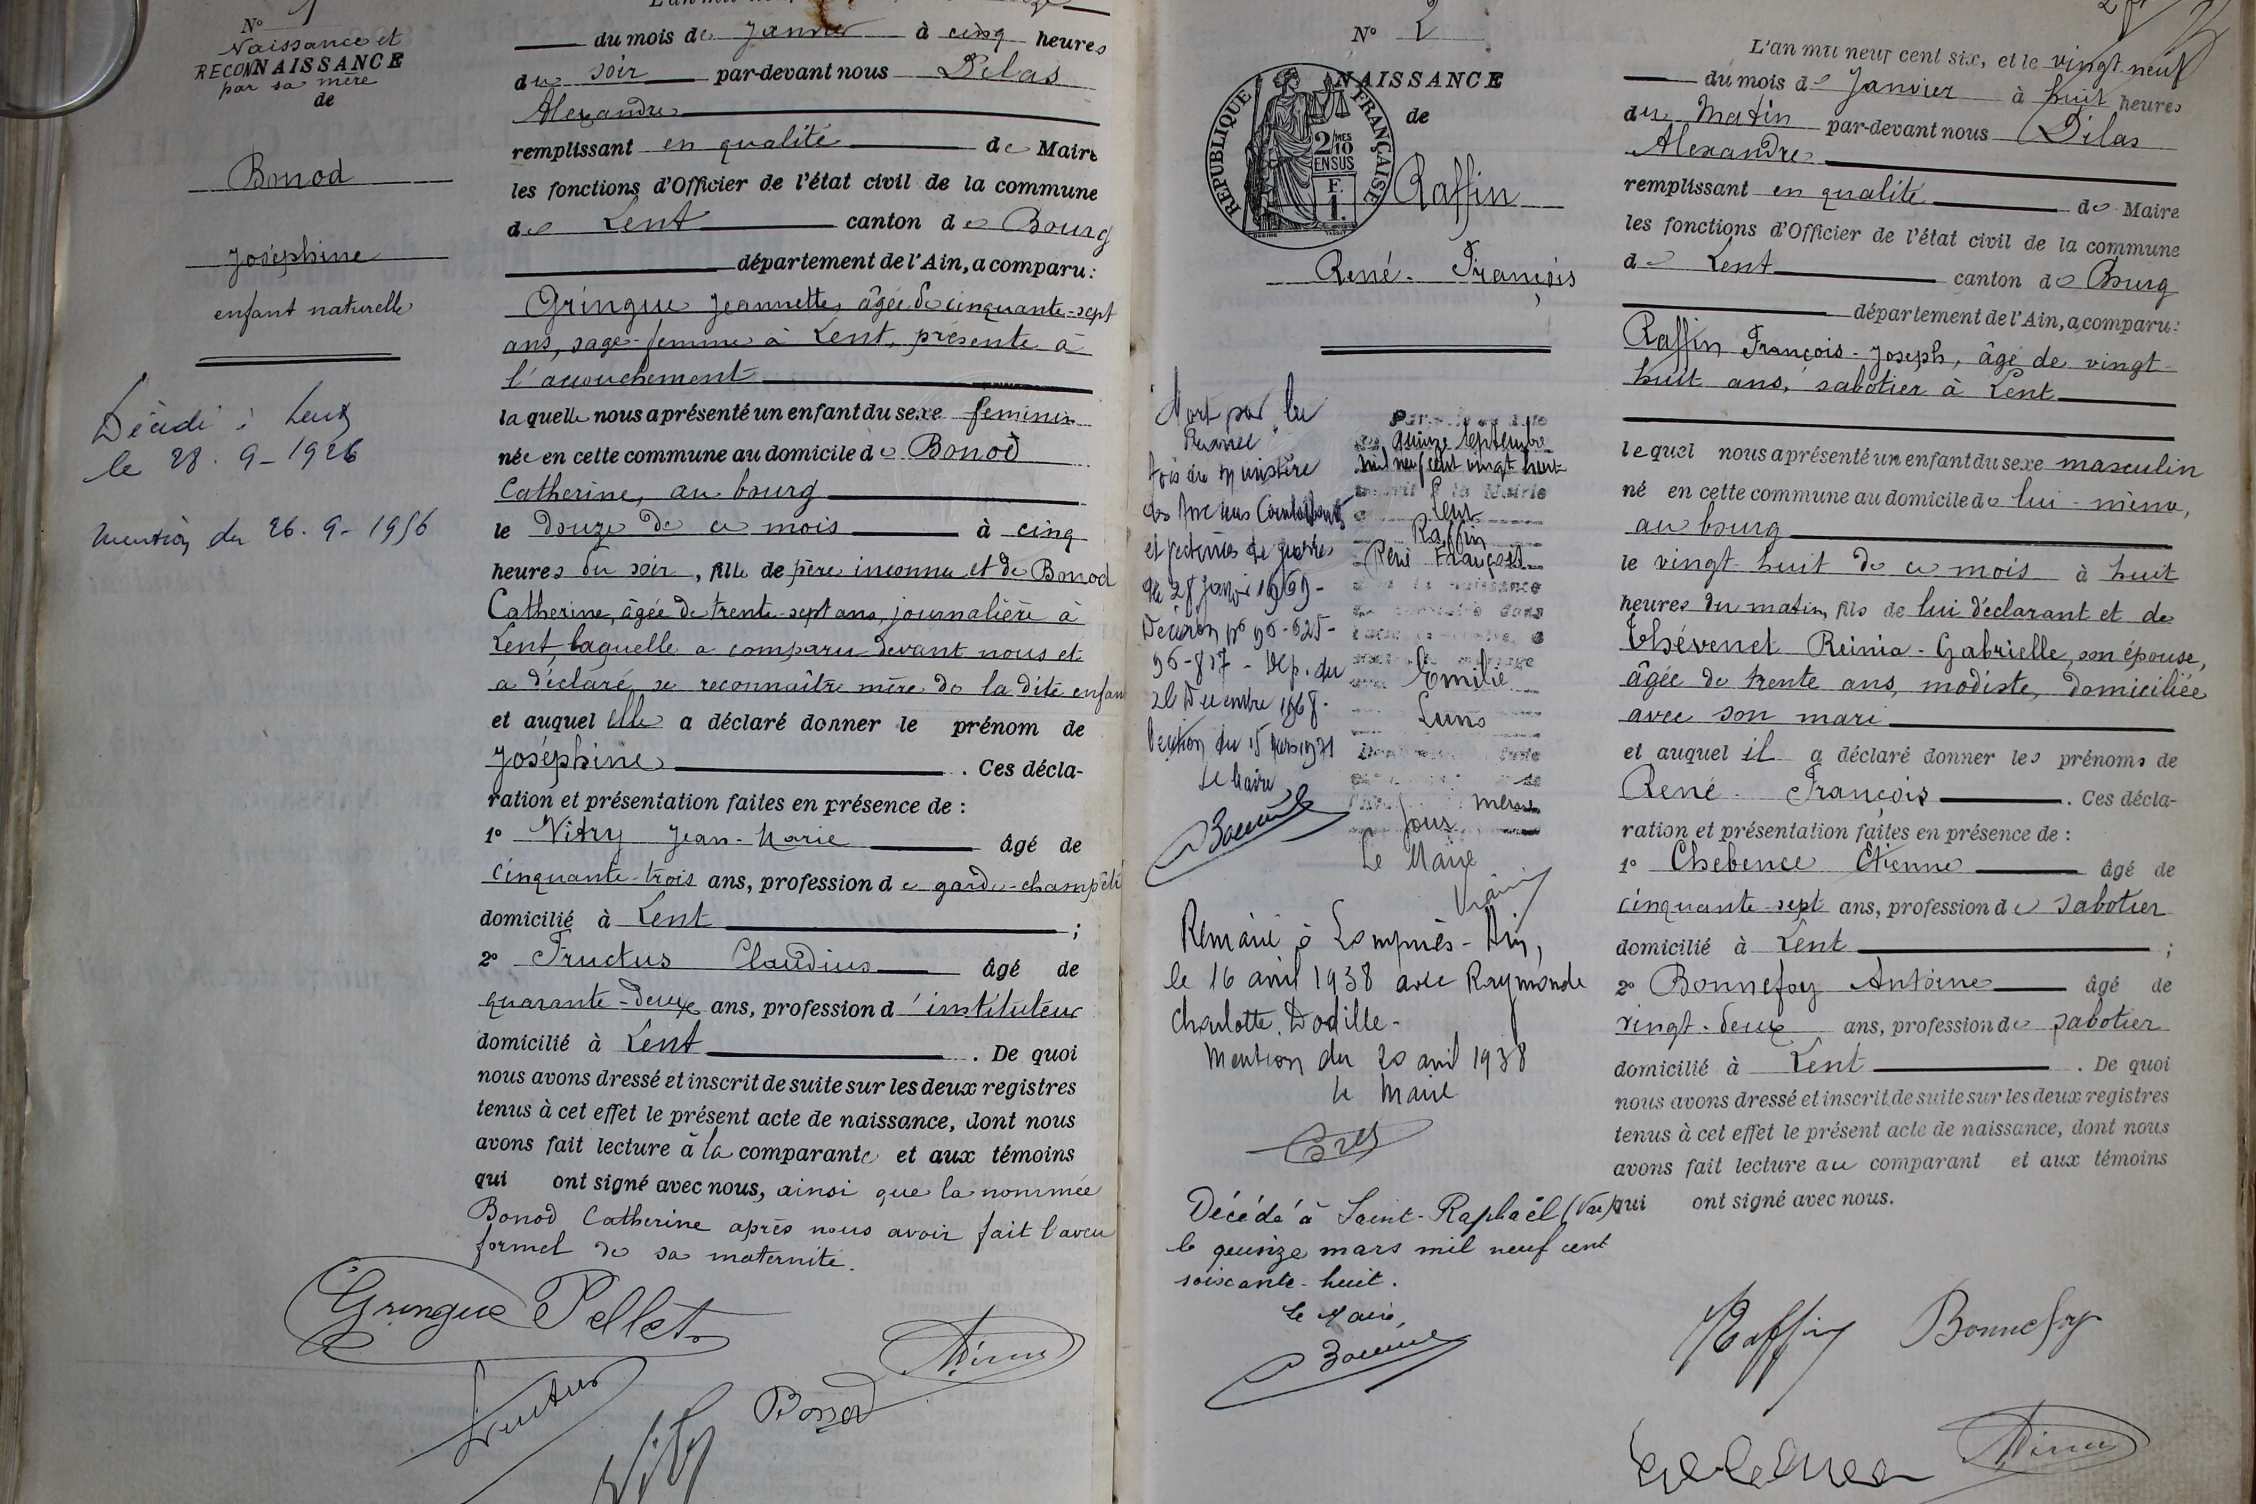 N° 1
Naissance et
RECONNAISSANCE
par sa mère
de
Bonod
Joséphine
enfant naturelle
le 28. 9-1926
mention du 26. 9-1956
du mois de Janvier à cinq heures
du soir par-devant nous Dilas
Alexandre
remplissant en qualité de Maire
les fonctions d'Officier de l'état civil de la commune
de Lent canton de Bourg
département de l'Ain, a comparu :
Gringue Jeannette, âgée de cinquante-sept
ans, sage-femme à Lent, présente à
l'accouchement
la quelle nous a présenté un enfant du sexe feminin
née en cette commune au domicile de Bonod
Catherine, au bourg
le douze de ce mois à cinq
heures du soir, fille de père inconnu et de Bonod
Catherine, âgée de trente-sept ans, journalière à
Lent laquelle a comparu devant nous et
a déclaré se reconnaître mère de la dite enfant
et auquel elle a déclaré donner le prénom de
Joséphine . Ces décla-
ration et présentation faites en présence de :
1° Vitry Jean-Marie âgé de
cinquante-trois ans, profession de garde-champêtre
domicilié à Lent ;
2° Fructus Claudius âgé de
quarante-deux ans, profession d'instituteur
domicilié à Lent . De quoi
nous avons dressé et inscrit de suite sur les deux registres
tenus à cet effet le présent acte de naissance, dont nous
avons fait lecture à la comparante et aux témoins
qui ont signé avec nous, ainsi que la nommée
Bonod Catherine après nous avoir fait l'aveu
formel de sa maternité.
Gringue Pellet
Fructus
Vitry
Bonod
Dilas
N° 2
NAISSANCE
de
REPUBLIQUE FRANÇAISE
2/10 MES
EN SUS
F.
1.
Raffin
René-François
Mort pour la
France
des Anciens Combattants
et victimes de guerre
du 28 janvier 1969-
Décision n° 96-625-
96-817 - Dép. du
26 Décembre 1968.
Mention du 15 mars 1971
Le Maire
quinze septembre
mil neuf cent vingt huit
la Mairie
Lent
Raffin
René François
naissance
mariage
Emilie
même
Jour
Le Maire
Remarié à Lompnès-Ain,
le 16 avril 1938 avec Raymonde
Charlotte Dodille-
Mention du 20 avril 1938
Le Maire
Décédé à Saint-Raphaël (Var)
le quinze mars mil neuf cent
soixante-huit.
Le Maire,
L'an mil neuf cent six, et le vingt neuf
du mois de Janvier à huit heures
du Matin par-devant nous Dilas
Alexandre
remplissant en qualité de Maire
les fonctions d'Officier de l'état civil de la commune
de Lent canton de Bourg
département de l'Ain, a comparu :
Raffin François-Joseph, âgé de vingt-
huit ans, sabotier à Lent
lequel nous a présenté un enfant du sexe masculin
né en cette commune au domicile de lui-même,
au bourg
le vingt-huit de ce mois à huit
heures du matin, fils de lui déclarant et de
Thévenet Reinia-Gabrielle, son épouse,
âgée de trente ans, modiste, domiciliée
avec son mari
et auquel il a déclaré donner les prénoms de
René-François . Ces décla-
ration et présentation faites en présence de :
1° Chebence Etienne âgé de
cinquante-sept ans, profession de sabotier
domicilié à Lent ;
2° Bonnefoy Antoine âgé de
vingt-deux ans, profession de sabotier
domicilié à Lent . De quoi
nous avons dressé et inscrit de suite sur les deux registres
tenus à cet effet le présent acte de naissance, dont nous
avons fait lecture au comparant et aux témoins
qui ont signé avec nous.
Raffin Bonnefoy
Dilas